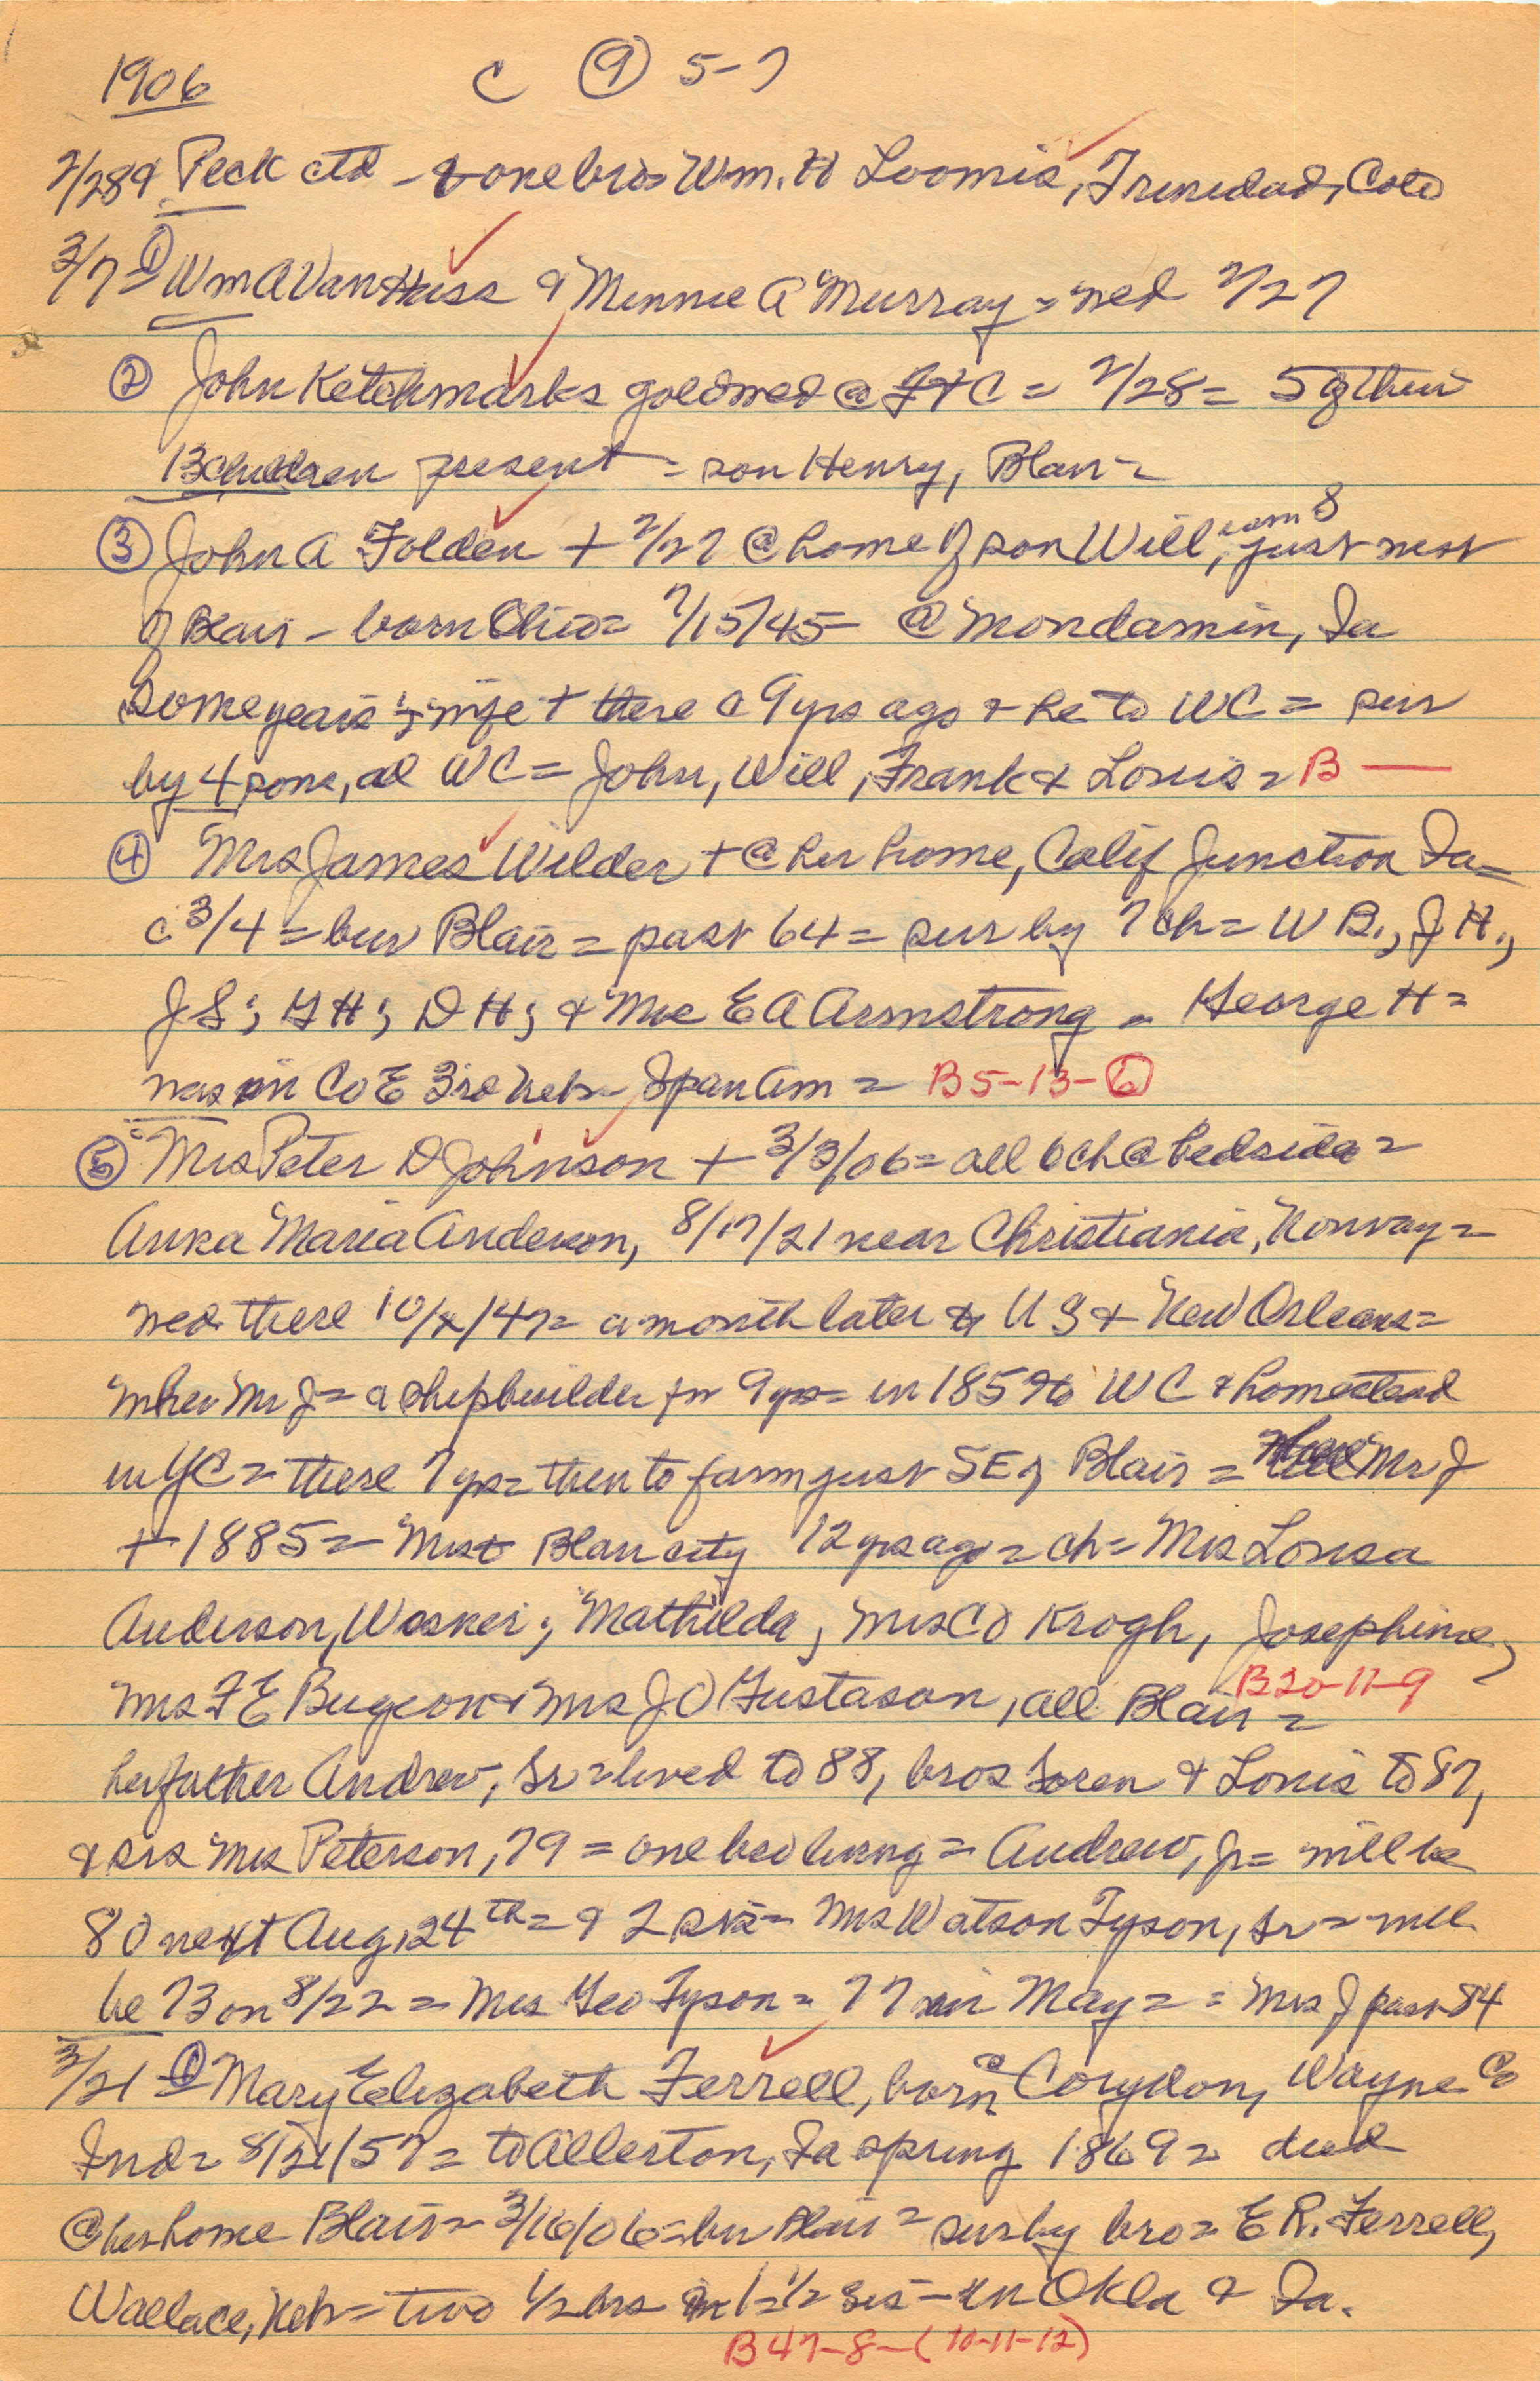 1906 C ⑨ 5-7
2/28 9. Peck ctd - & one bro = Wm. H Loomis, Trinidad, Colo
3/7 = ① Wm A Van Huss & Minnie A Murray = wed 2/27
② John Ketchmarks gold wed @ Ft C = 2/28 = 5 of their
13 children present = son Henry, Blair =
③ John A Folden + 2/27 @ home of son Will, just west
of Blair - born Ohio = 2/15/45 @ Mondamin, Ia
some years; wife + there c 9 yrs ago & he to WC = sur
by 4 sons, al WC = John, Will, Frank & Louis = B —
④ Mrs James Wilder + @ her home, Calif Junction Ia =
c 3/4 = bur Blair = past 64 = sur by 7 ch = W B., J H.,
J S; G H; D H; & Mrs E A Armstrong - George H =
was in Co E 3rd Neb - Span Am = B5-13-⑥
⑤ Mrs Peter D Johnson + 3/3/06 = all 6 ch @ bedside =
Anna Maria Anderson, 8/17/21 near Christiania, Norway =
wed there 10/x/47 = a month later to U S & New Orleans =
wher Mr J = a shipbuilder for 9 yrs = in 1857 to WC & homestead
in YC = there 7 yrs = then to farm just SE of Blair = Mr J
+ 1885 = Mrs to Blair city 12 yrs ago = ch = Mrs Lousa
Anderson, Wasker; Mathilda, Mrs C O Krogh, Josephine,
Mrs F E Bugeon & Mrs J O Gustason, all Blair = B20-11-9
her father Andrew, Sr = lived to 88, bros Soren & Louis to 87,
& sis Mrs Peterson, 79 = one bro living = Andrew, Jr = will be
80 next Aug, 24th = & 2 sis = Mrs Watson Tyson, Sr = will
be 73 on 8/22 = Mrs Geo Tyson = 77 in May = = Mrs J past 84
3/21 = ① Mary Elizabeth Ferrell, born @ Corydon, Wayne Co
Ind = 8/21/57 = to Allerton, Ia spring 1869 = died
@ her home Blair = 3/16/06 = bur Blair = sur by bro = E R. Ferrell,
Wallace, Neb = two 1/2 bros 1 = 1/2 sis - in Okla & Ia.
B47-8-(10-11-12)